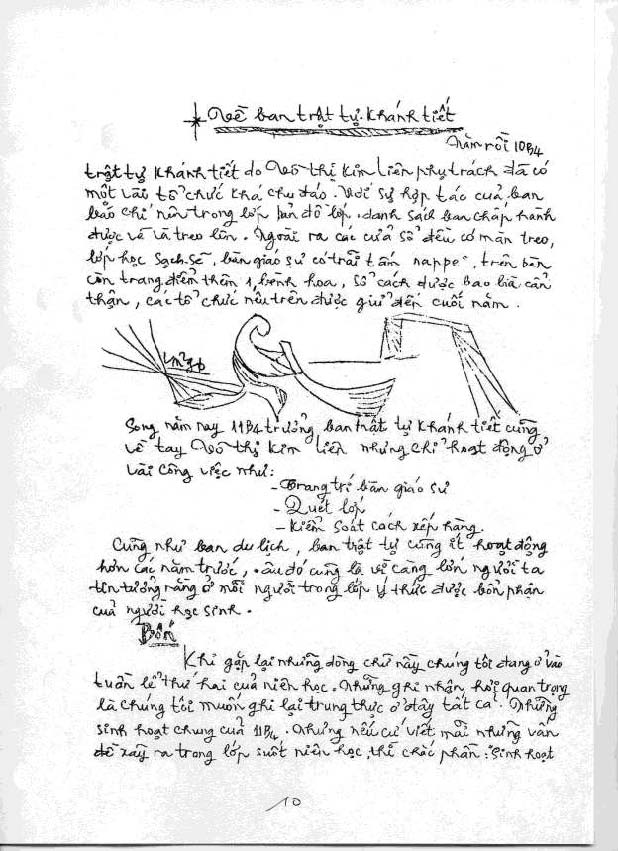 Về ban trật tự. Khánh tiết
Năm rồi 10B4
trật tự Khánh tiết do Võ thị Kim Liên phụ trách đã có
một vài tổ chức khá chu đáo. Với sự hợp tác của ban
báo chí nên trong lớp bản đồ lớp. danh sách ban chấp hành
được vẽ và treo lên. Ngoài ra các cửa sổ đều có màn treo,
lớp học sạch sẽ, bàn giáo sư có trải tấm nappe, trên bàn
còn trang điểm thêm 1 bình hoa, sổ sách được bao bìa cẩn
thận, các tổ chức nêu trên được giữ đến cuối năm.
Song năm nay 11B4 trưởng ban trật tự Khánh tiết cũng
về tay Võ thị Kim Liên nhưng chỉ hoạt động ở
vài công việc như:
- Trang trí bàn giáo sư
- Quét lớp
- Kiểm soát cách xếp hàng.
Cũng như ban du lịch, ban trật tự cũng ít hoạt động
hơn các năm trước, âu đó cũng là vì càng lớn người ta
tin tưởng rằng ở mỗi người trong lớp ý thức được bổn phận
của người học sinh.
Bốn
Khi gặp lại những dòng chữ này chúng tôi đang ở vào
tuần lễ thứ hai của niên học. Những ghi nhận, hơi quan trọng
là chúng tôi muốn ghi lại trung thực ở đây tất cả. Những
sinh hoạt chung của 11B4. Nhưng nếu cứ viết mãi những vấn
đề xảy ra trong lớp suốt niên học, thì chắc phần: sinh hoạt
10